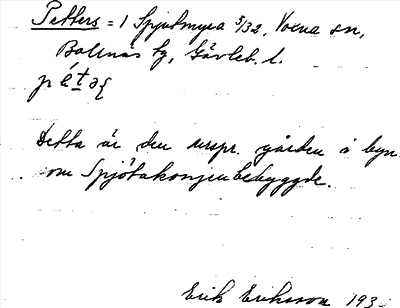 Petters = 1 Spjutmyra 5/32, Voxna sn,
Bollnäs tg, Gävleb. l.
Detta är den urspr. gården å byn
om Spjótakonjen bebyggde.
Erik Eriksson 193